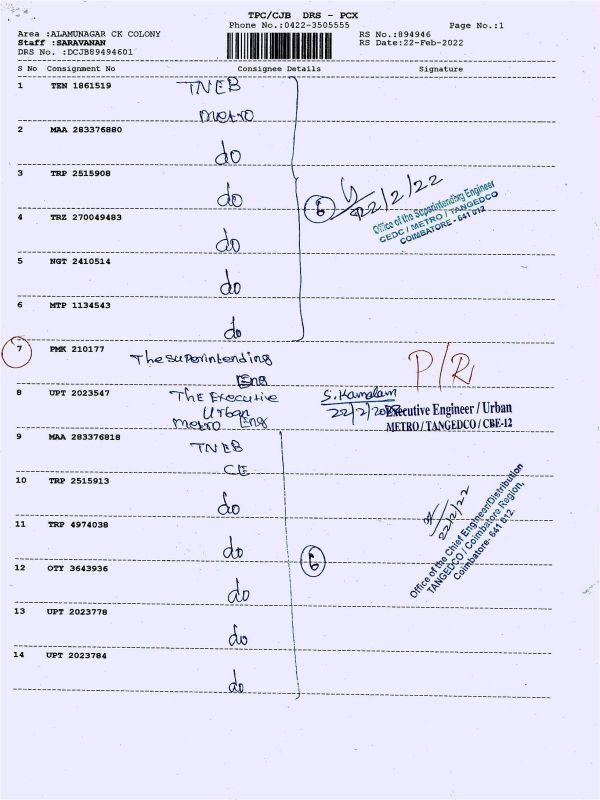 TPC/CJB DRS - PCX
Phone No.:0422-3505555 Page No.:1
Area :ALAMUNAGAR CK COLONY RS No.:894946
Staff :SARAVANAN RS Date:22-Feb-2022
DRS No. :DCJB89494601
S No Consignment No Consignee Details Signature
1 TEN 1861519 TNEB
metro
2 MAA 283376880 do
3 TRP 2515908 do
6 22/2/22
Office of the Superintending Engineer
CEDC / METRO / TANGEDCO
COIMBATORE - 641 012
4 TRZ 270049483 do
5 NGT 2410514 do
6 MTP 1134543 do
7 PMK 210177 The Superintending
Eng
P/R
8 UPT 2023547 The Executive
Urban
metro Eng
S. Kamalam
22/2/2022
Executive Engineer / Urban
METRO / TANGEDCO / CBE-12
9 MAA 283376818 TNEB
CE
10 TRP 2515913 do
11 TRP 4974038 do
6
22/2/22
Office of the Chief Engineer/Distribution
TANGEDCO / Coimbatore Region,
Coimbatore- 641 012.
12 OTY 3643936 do
13 UPT 2023778 do
14 UPT 2023784 do